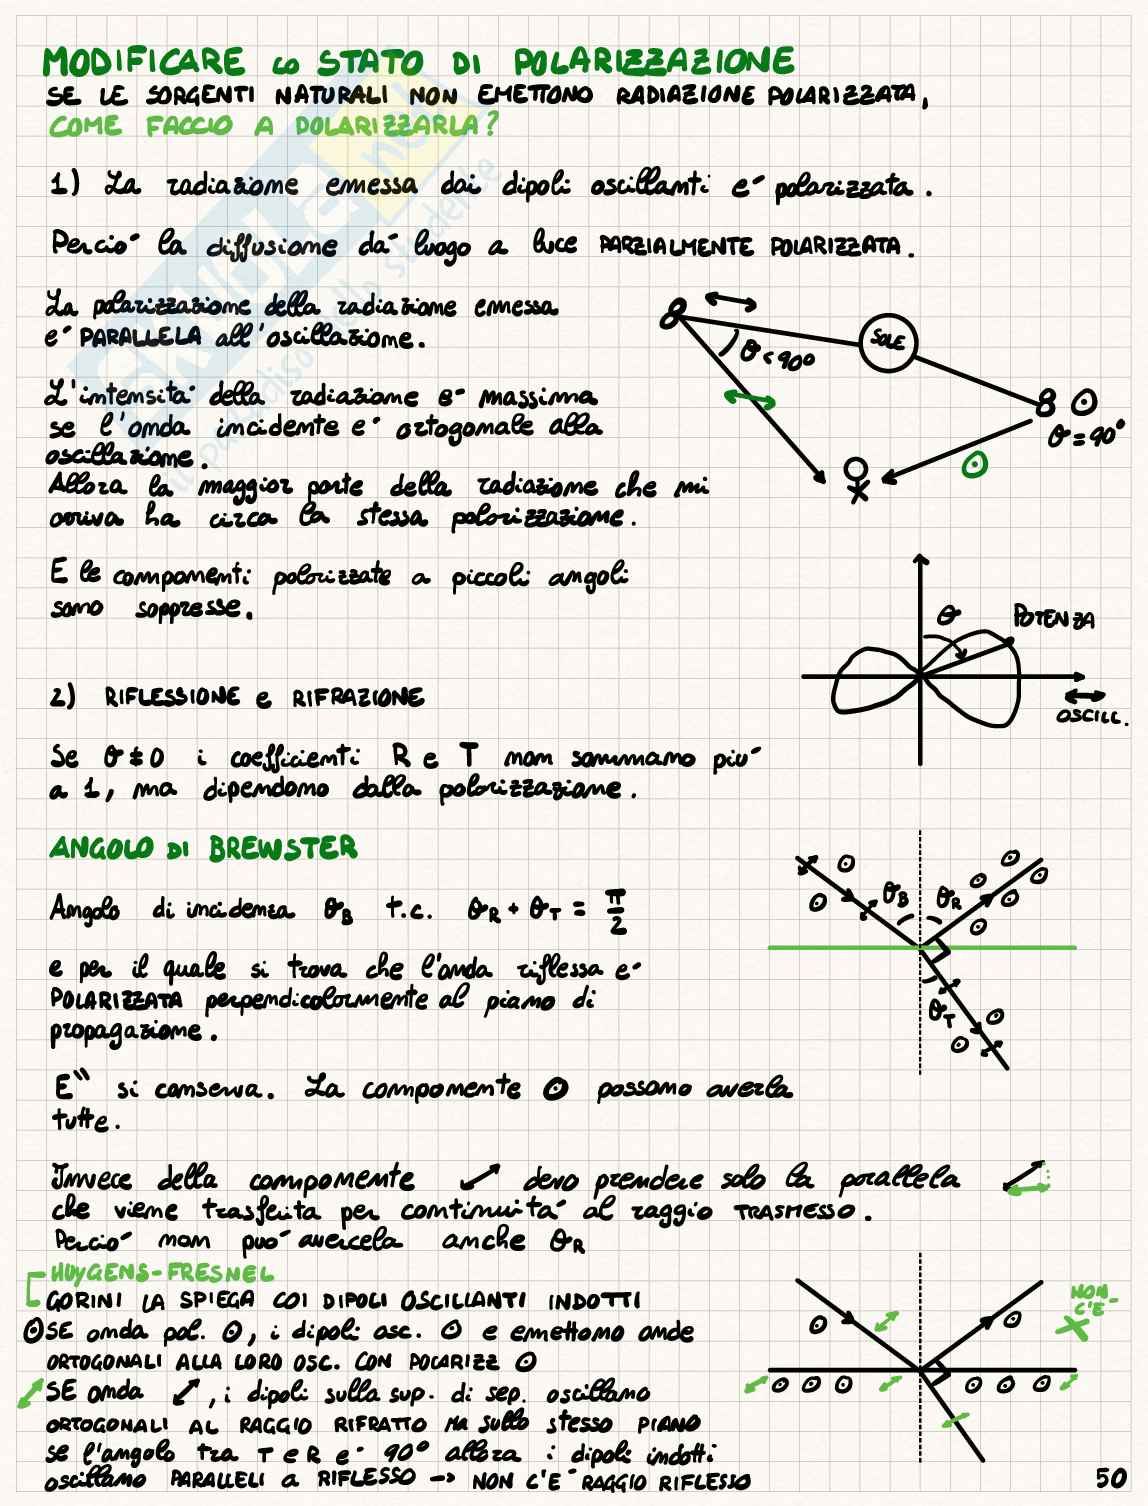 MODIFICARE lo STATO DI POLARIZZAZIONE
SE LE SORGENTI NATURALI NON EMETTONO RADIAZIONE POLARIZZATA,
COME FACCIO A POLARIZZARLA?
1) La radiazione emessa dai dipoli oscillanti e' polarizzata.
Percio' la diffusione da' luogo a luce PARZIALMENTE POLARIZZATA.
La polarizzazione della radiazione emessa
e' PARALLELA all'oscillazione.
SOLE
θ<90°
L'intensita' della radiazione e' massima
se l'onda incidente e' ortogonale alla
oscillazione.
θ=90°
Allora la maggior parte della radiazione che mi
arriva ha circa la stessa polarizzazione.
E le componenti polarizzate a piccoli angoli
sono soppresse.
θ
POTENZA
OSCILL.
2) RIFLESSIONE e RIFRAZIONE
Se θ≠0 i coefficienti R e T non sommano piu'
a 1, ma dipendono dalla polarizzazione.
ANGOLO DI BREWSTER
Angolo di incidenza θB t.c. θR + θT = π/2
θB θR
θT
e per il quale si trova che l'onda riflessa e'
POLARIZZATA perpendicolarmente al piano di
propagazione.
E\\ si conserva. La componente ⊙ possono averla
tutte.
Invece della componente ↗ devo prendere solo la parallela
che viene trasferita per continuita' al raggio TRASMESSO.
Percio' non puo' avercela anche θR
HUYGENS-FRESNEL
GORINI LA SPIEGA COI DIPOLI OSCILLANTI INDOTTI
⊙ SE onda pol. ⊙, i dipoli osc. ⊙ e emettono onde
ORTOGONALI ALLA LORO OSC. CON POLARIZZ ⊙
↗ SE onda ↗, i dipoli sulla sup. di sep. oscillano
ORTOGONALI AL RAGGIO RIFRATTO MA SULLO STESSO PIANO
se l'angolo tra T e R e' 90° allora i dipoli indotti
oscillano PARALLELI a RIFLESSO -> NON C'E' RAGGIO RIFLESSO
NON
C'E'
50
SKUOLA.net
il paradiso dello studente